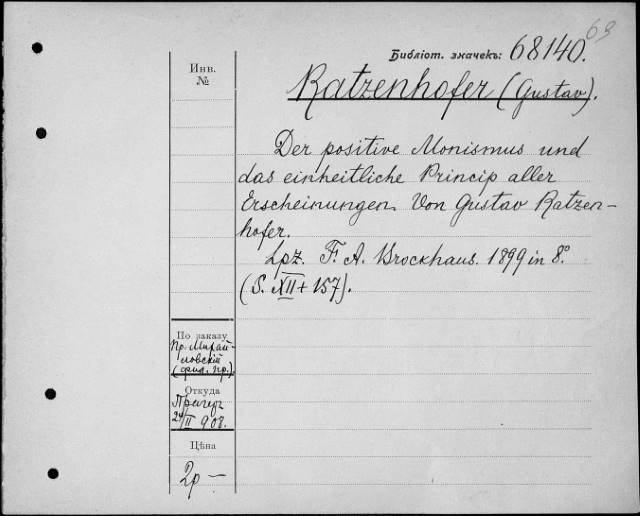 63
Библіот. значекъ: 68140.
Инв.
№
Ratzenhofer (Gustav).
Der positive Monismus und
das einheitliche Princip aller
Erscheinungen. Von Gustav Ratzen-
hofer.
Lpz. F. A. Brockhaus. 1899 in 8°.
(S. XII + 157).
По заказу
Пр. Михай-
ловскій
(фил. пр.).
Откуда
Прагеръ
24/II 908.
Цѣна
2р —